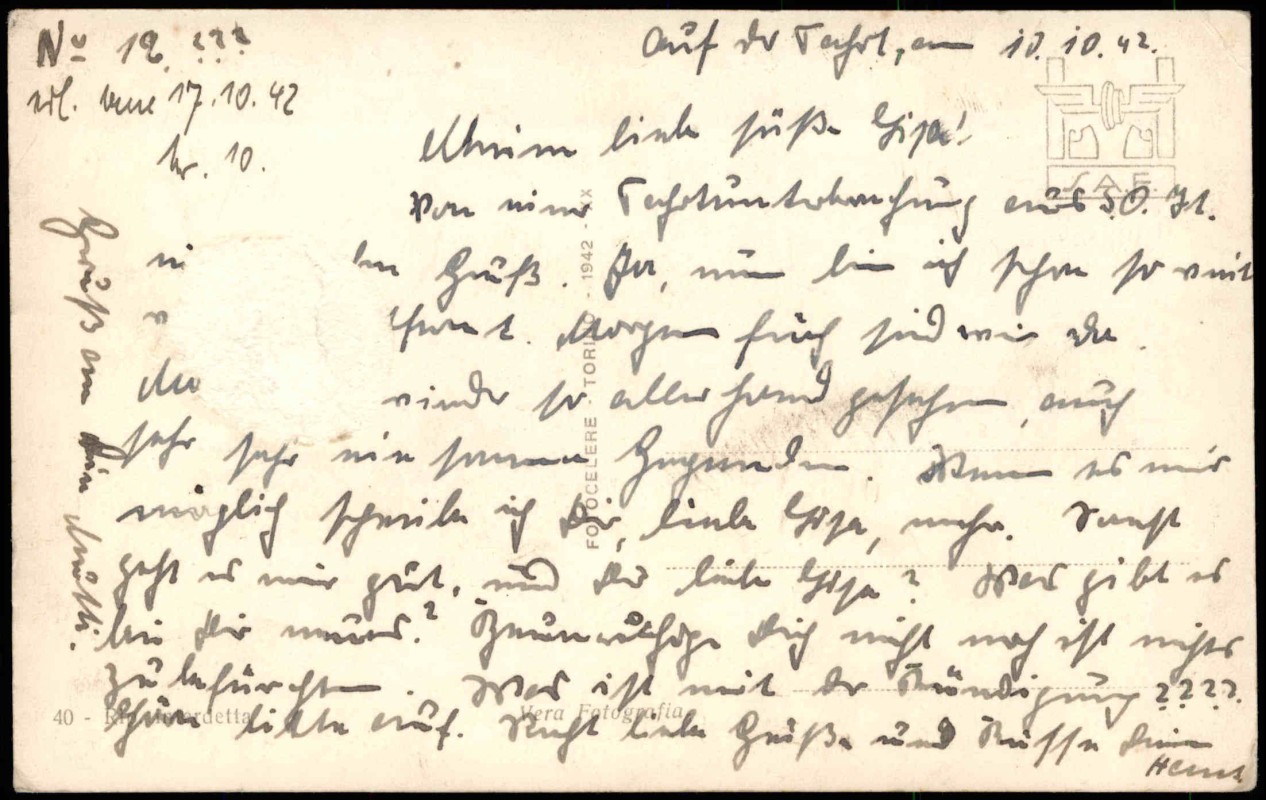 No 12. ???
Auf der Fahrt, am 10. 10. 42.
erl. vom 17.10.42
Nr. 10.
SAF
Meine liebe süße Gisa!
Von einer Fahrtunterbrechung aus S.O. It.
ei len Gruß. Ja, nun bin ich schon so weit
v tfernt. Morgen früh sind wir da.
wieder so allerhand gesehen, auch
sehr sehr einsame Gegenden. Wenn es mir
möglich schreibe ich Dir, liebe Gisa, mehr. Sonst
geht es mir gut, und Dir liebe Gisa? Was gibt es
bei Dir neues? Beunruhige Dich nicht noch ist nichts
zu befürchten. Was ist mit der Kündigung ????
Hör bitte auf. Recht liebe Grüße und Küsse Dein
Heinz
Gruß an Mutti.
FOTOCELERE - TORINO - 1942 - XX
40 -
Vera Fotografia